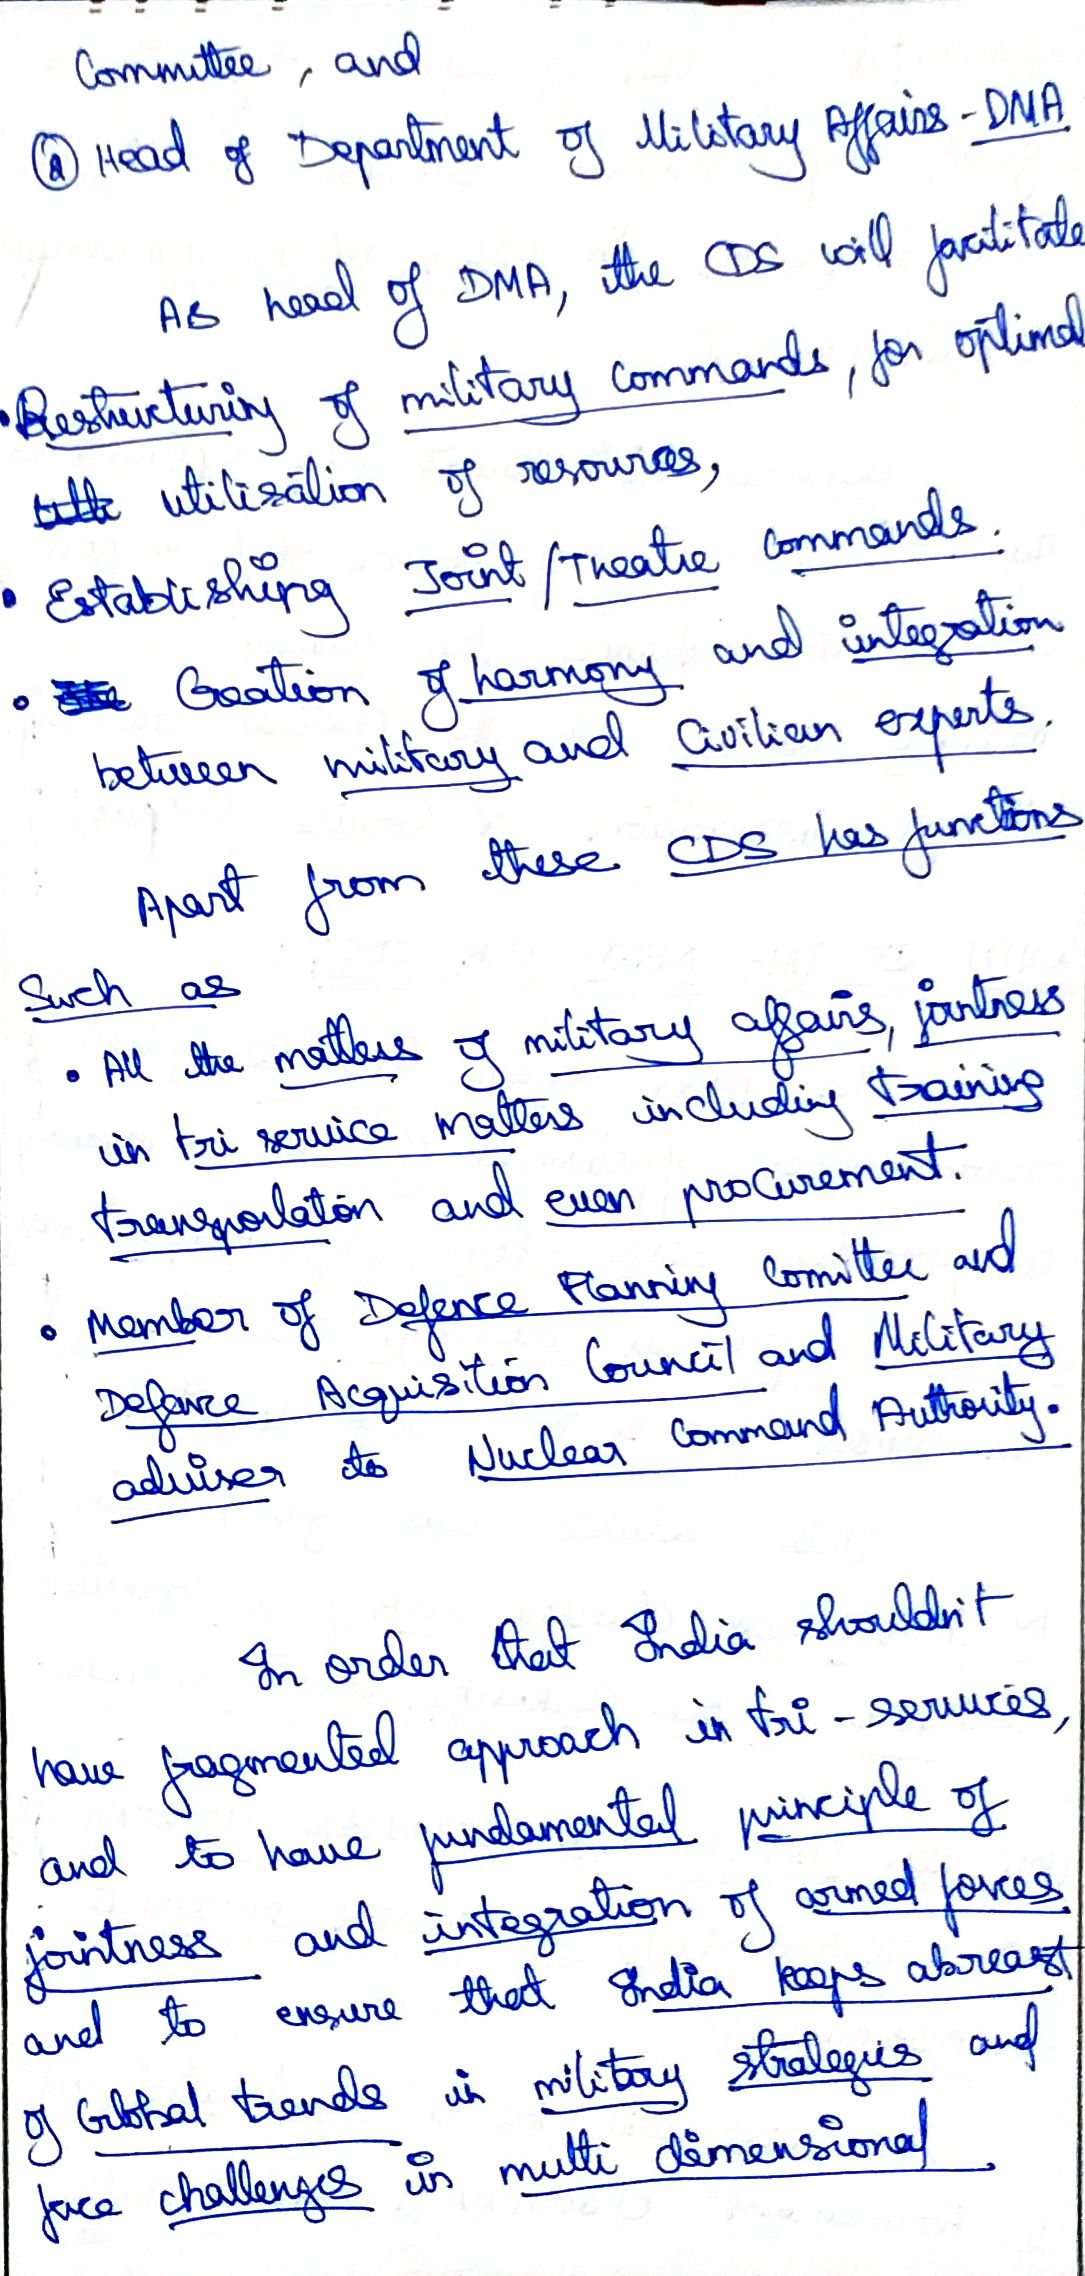 Committee, and
② Head of Department of Military Affairs - DMA
As head of DMA, the CDS will facilitate
• Restructuring of military commands, for optimal
utilisation of resources,
• Establishing Joint/Theatre commands.
• Creation of harmony and integration
between military and civilian experts.
Apart from these CDS has functions
Such as
• All the matters of military affairs, jointness
in tri service matters including training
transportation and even procurement.
• Member of Defence Planning Comittee and
Defence Acquisition Council and Military
adviser to Nuclear Command Authority.
In order that India shouldn't
have fragmented approach in tri-services,
and to have fundamental principle of
jointness and integration of armed forces
and to ensure that India keeps abreast
of Global trends in military strategies and
face challenges in multi dimensional